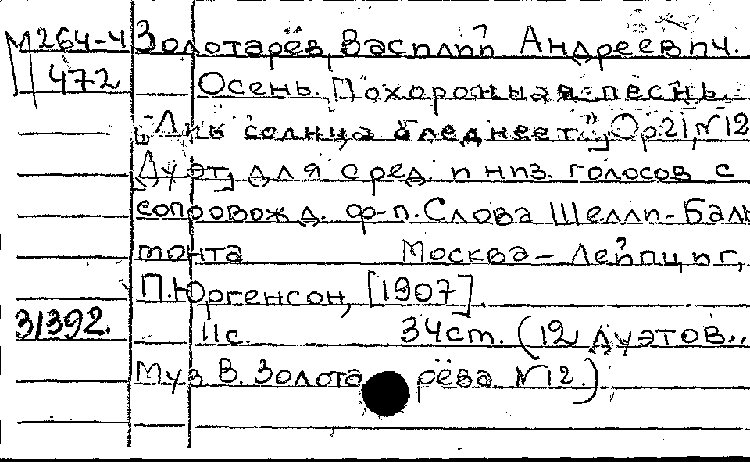 М264-4 Золотарёв, Василий Андреевич.
472 Осень. Похоронная песнь.
„Лик солнца бледнеет.", Ор21, N12
[Дуэт] для сред. и низ. голосов с
сопровожд. ф-п. Слова Шелли-Баль
монта Москва - Лейпциг,
П. Юргенсон, [1907].
31392. 11с. 34ст. (12 дуэтов..
Муз В. Золотарёва N12.)